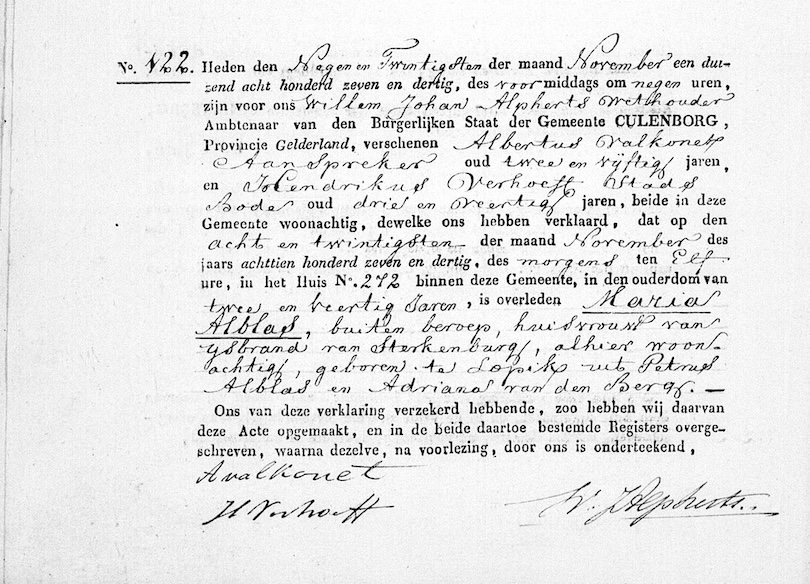 No. 122. Heden den Negen en Twintigsten der maand November een dui-
zend acht honderd zeven en dertig, des voor middags om negen uren,
zijn voor ons Willem Johan Alpherts Wethouder
Ambtenaar van den Burgerlijken Staat der Gemeente CULENBORG,
Provincje Gelderland, verschenen Albertus Valkonet
Aanspreker oud twee en vijftig jaren,
en Hendrikus Verhoeff Stads
Bode oud drie en veertig jaren, beide in deze
Gemeente woonachtig, dewelke ons hebben verklaard, dat op den
acht en twintigsten der maand November des
jaars achttien honderd zeven en dertig, des morgens ten Elf
ure, in het Huis No. 272 binnen deze Gemeente, in den ouderdom van
twee en veertig Jaren, is overleden Maria
Alblas, buiten beroep, huisvrouw van
ysbrand van Sterkenburg, alhier woon-
achtig, geboren te Lopik uit Petrus
Alblas en Adriana van den Berg. —
Ons van deze verklaring verzekerd hebbende, zoo hebben wij daarvan
deze Acte opgemaakt, en in de beide daartoe bestemde Registers overge-
schreven, waarna dezelve, na voorlezing, door ons is onderteekend,
A valkonet
H Verhoeff W. J. Alpherts.